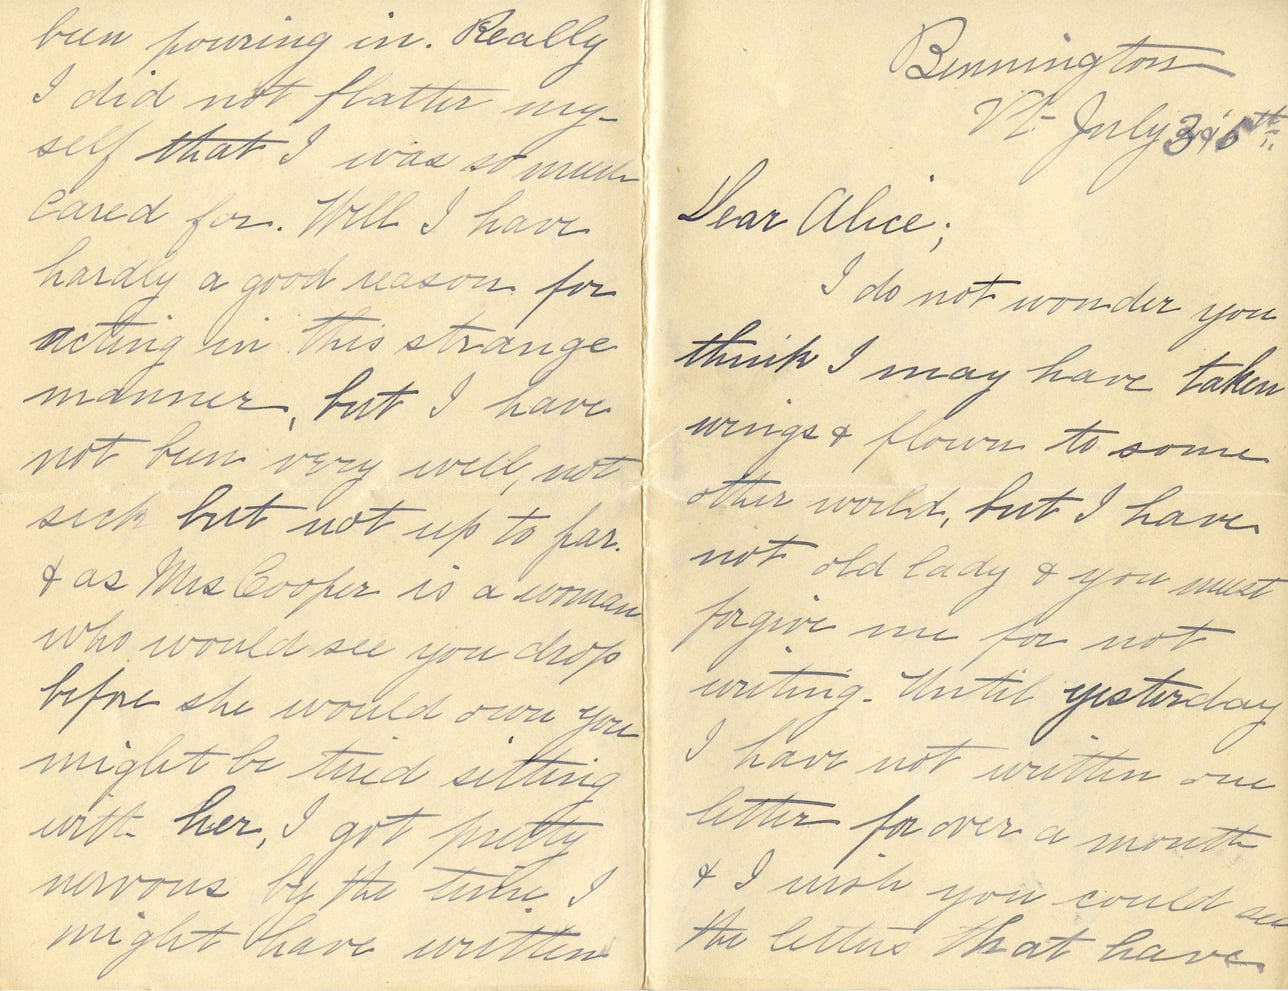 Bennington
Vt July
Dear Alice;
I do not wonder you
think I may have taken
wings & flown to some
other world, but I have
not old lady & you must
forgive me for not
writing. Until yesterday
I have not written one
letter for over a month
& I wish you could see
the letters that have
been pouring in. Really
I did not flatter my-
self that I was so much
cared for. Well I have
hardly a good reason for
acting in this strange
manner, but I have
not been very well, not
sick but not up to par.
& as Mrs Cooper is a woman
who would see you drop
before she would own you
might be tired sitting
with her, I got pretty
nervous by the time I
might have written